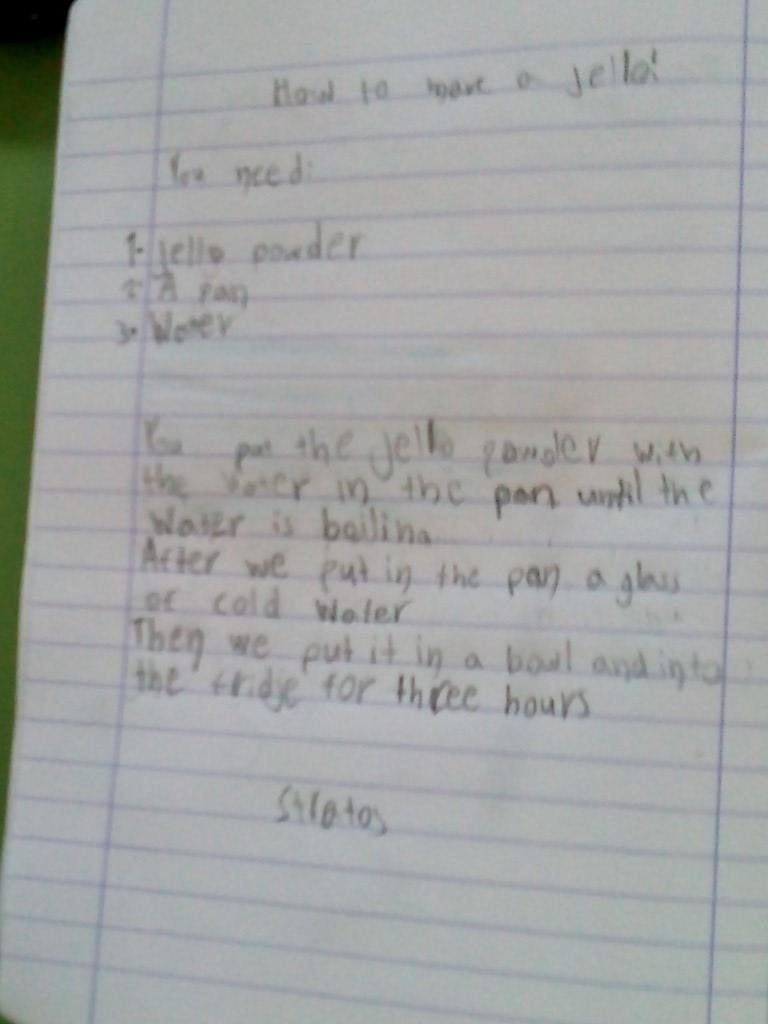 How to make a jello!
You need:
1. jello powder
2. A pan
3. Water
You put the jello powder with
the water in the pan until the
water is boiling
After we put in the pan a glass
of cold water
Then we put it in a bowl and into
the fridje for three hours
Stratos